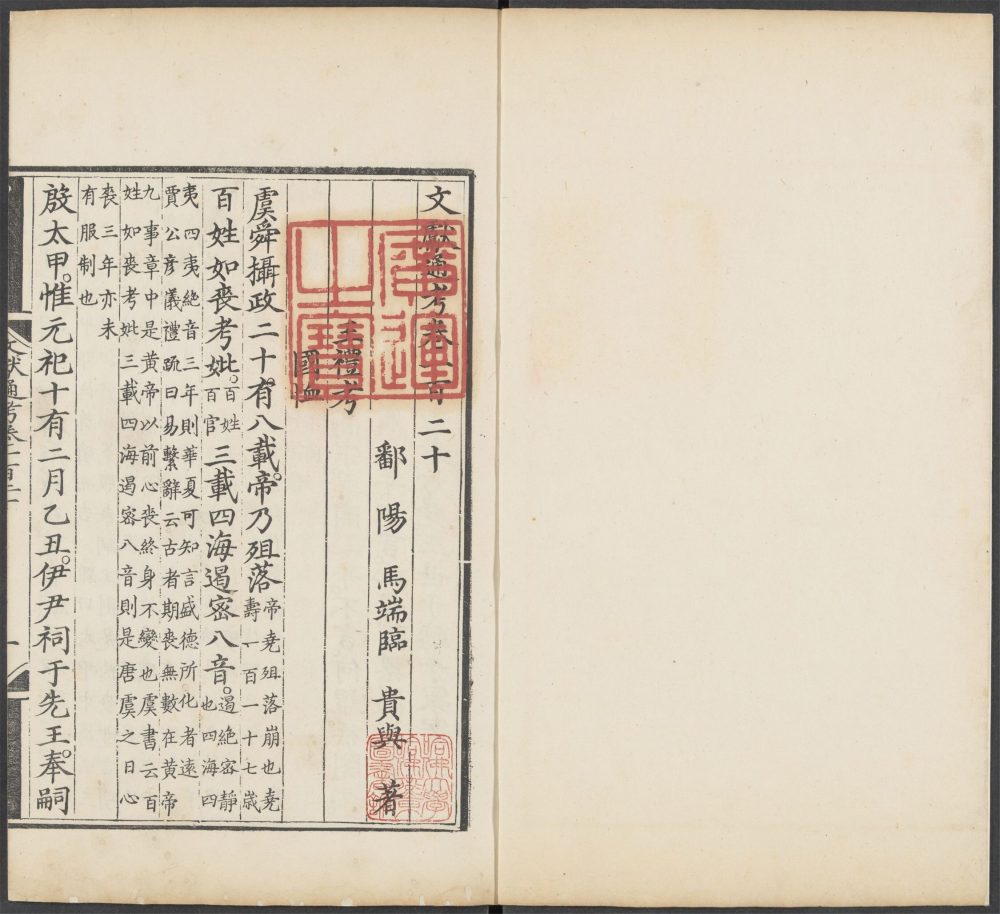 文獻通考卷一百二十
鄱陽 馬端臨 貴與 著
王禮考
國恤
虞舜攝政二十有八載。帝乃殂落帝堯殂落崩也堯壽一百一十七歲
百姓如喪考妣。百姓百官三載四海遏密八音。遏絕密靜也四海四
夷四夷絕音三年則華夏可知言盛德所化者遠
賈公彥儀禮疏曰易繫辭云古者期喪無數在黃帝
九事章中是黃帝以前心喪終身不變也虞書云百
姓如喪考妣三載四海遏密八音則是唐虞之日心
喪三年亦未
有服制也
殷太甲。惟元祀十有二月乙丑。伊尹祠于先王。奉嗣
文獻通考卷一百二十
一
廣運之寶